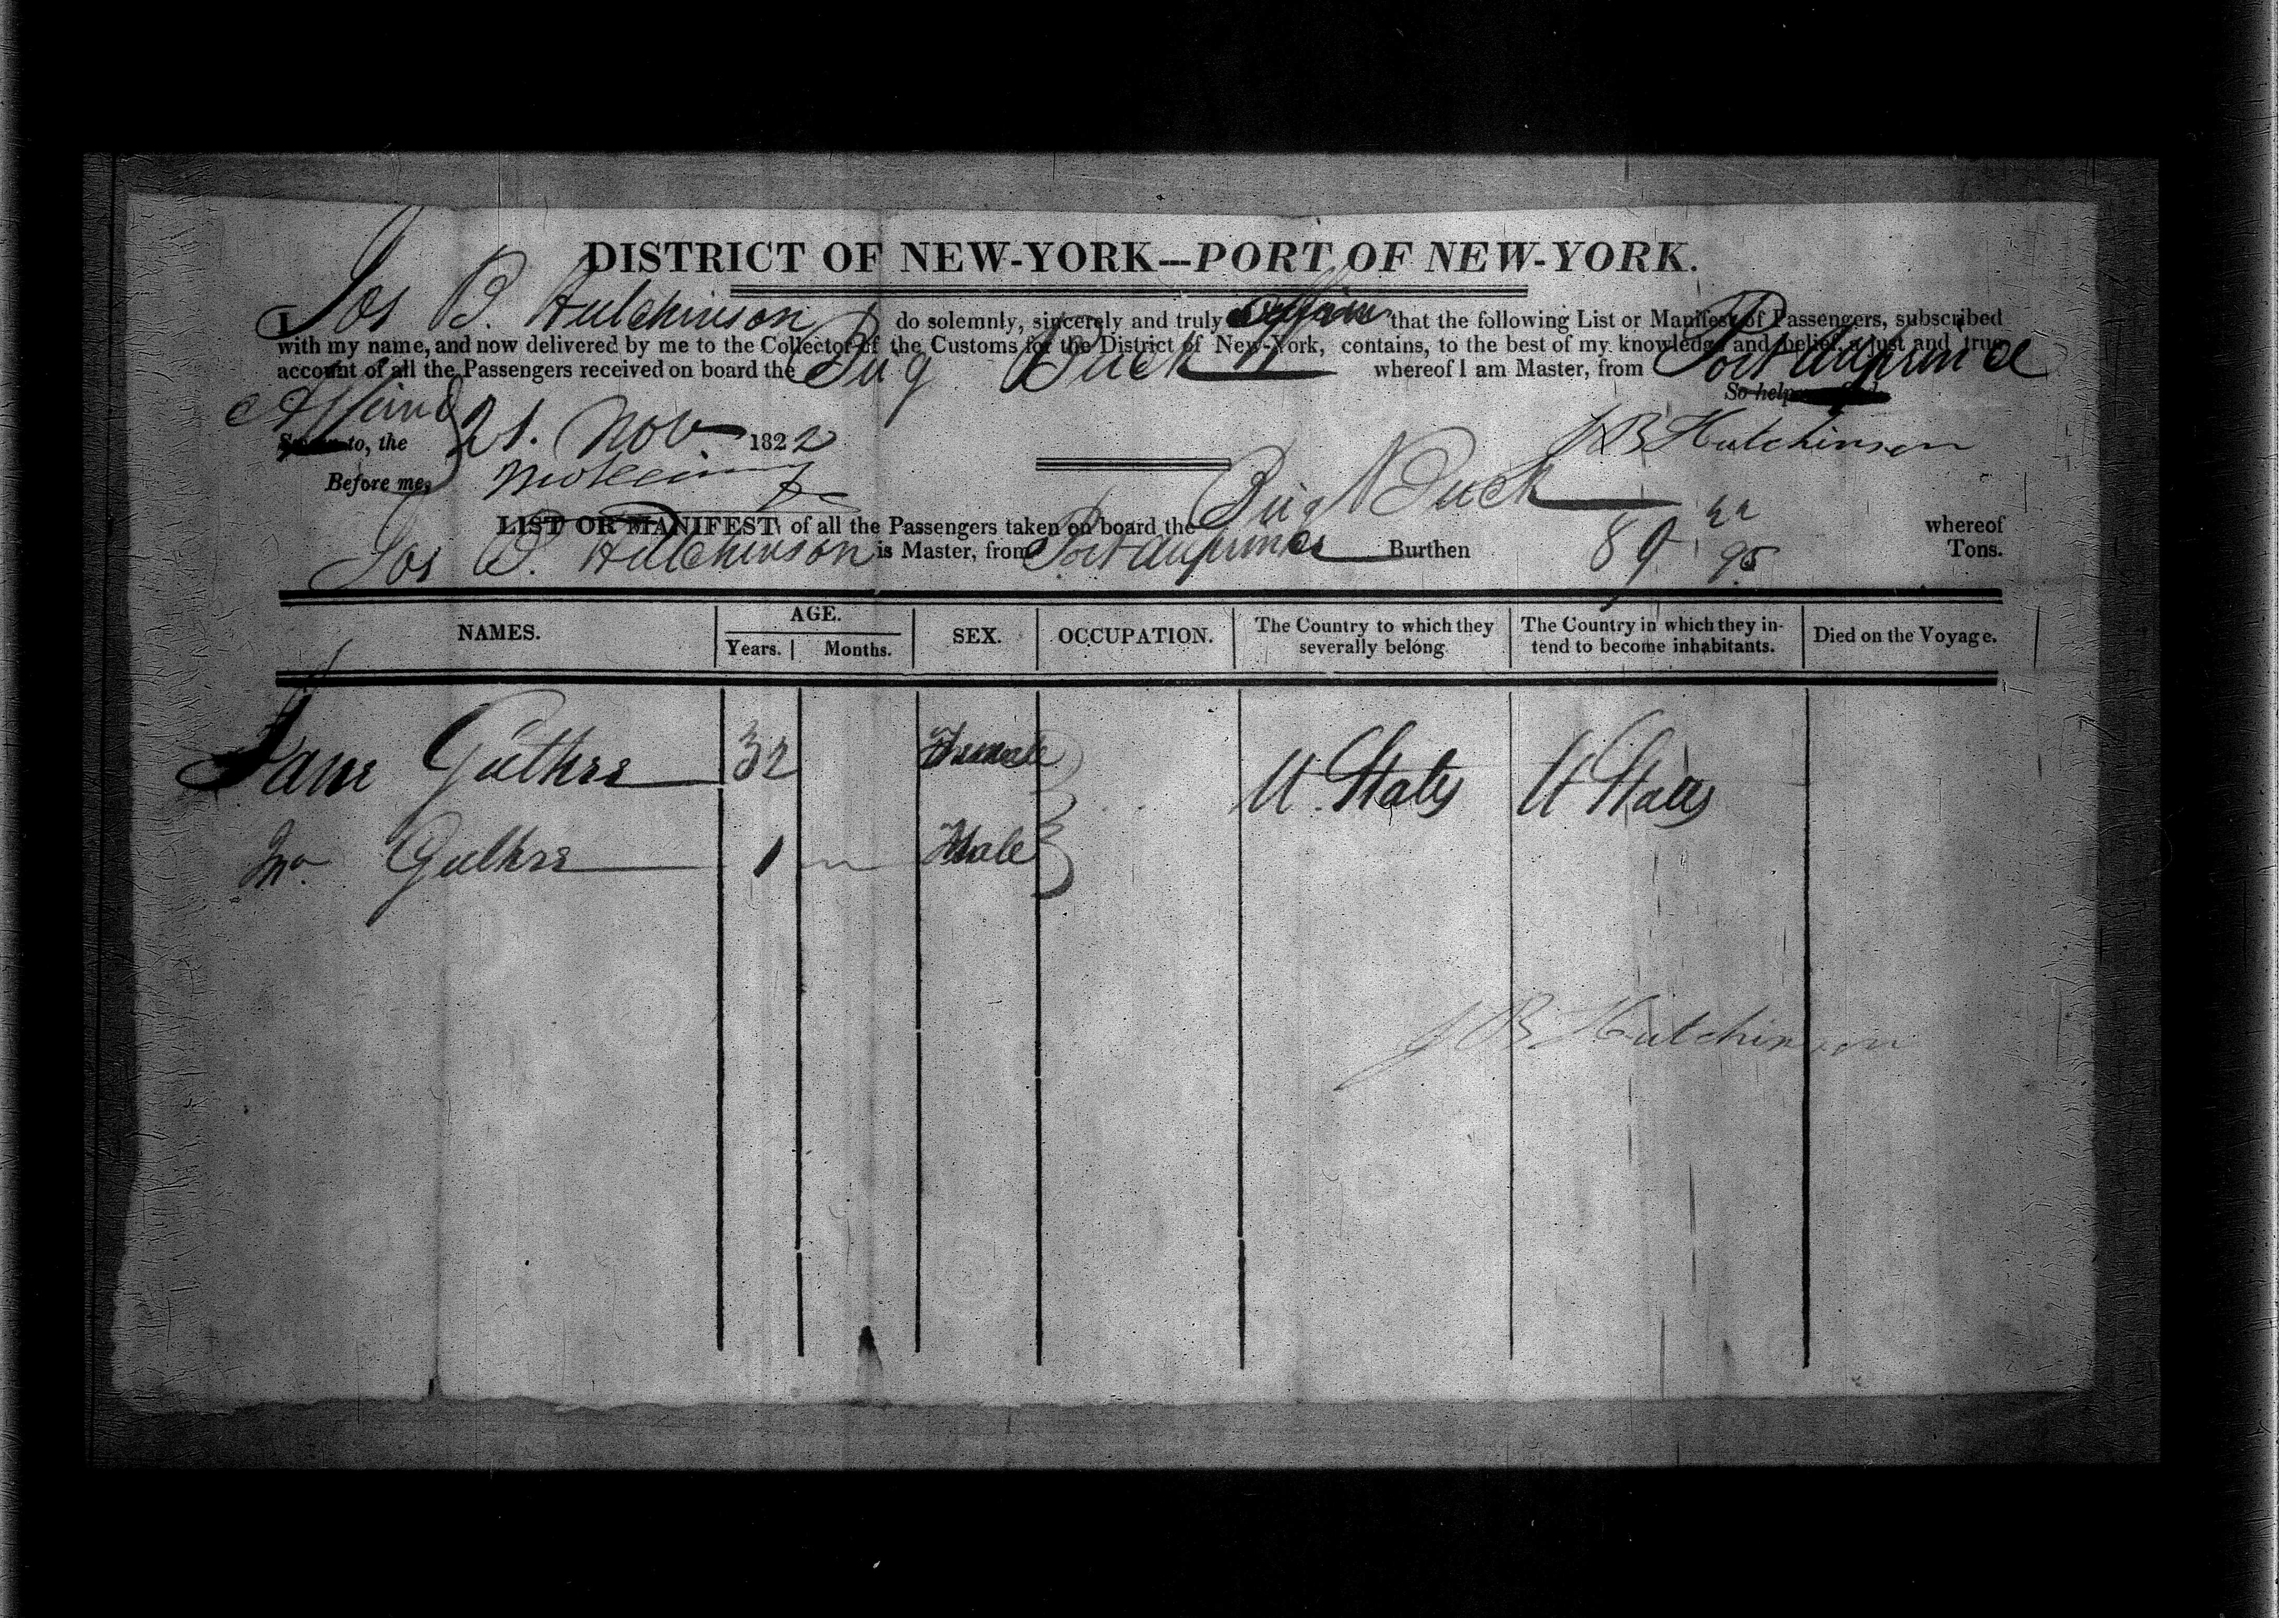 DISTRICT OF NEW-YORK---PORT OF NEW-YORK.
I Jos B. Hutchinson do solemnly, sincerely and truly affirm that the following List or Manifest of Passengers, subscribed
with my name, and now delivered by me to the Collector of the Customs for the District of New-York, contains, to the best of my knowledge and belief, a just and true
account of all the Passengers received on board the Brig Buck whereof I am Master, from Port au prince
So help
Affirmd
to, the 21. Nov 1822
J B Hutchinson
Before me,
LIST OR MANIFEST of all the Passengers taken on board the Brig Buck whereof
Jos B. Hutchinson is Master, from Port au prince Burthen 89 95 Tons.
NAMES. AGE. SEX. OCCUPATION. The Country to which they severally belong The Country in which they intend to become inhabitants. Died on the Voyage.
Years. Months.
Jane Guthree 32 Female U. States U States
Jno Guthree 1 Male
J B Hutchinson